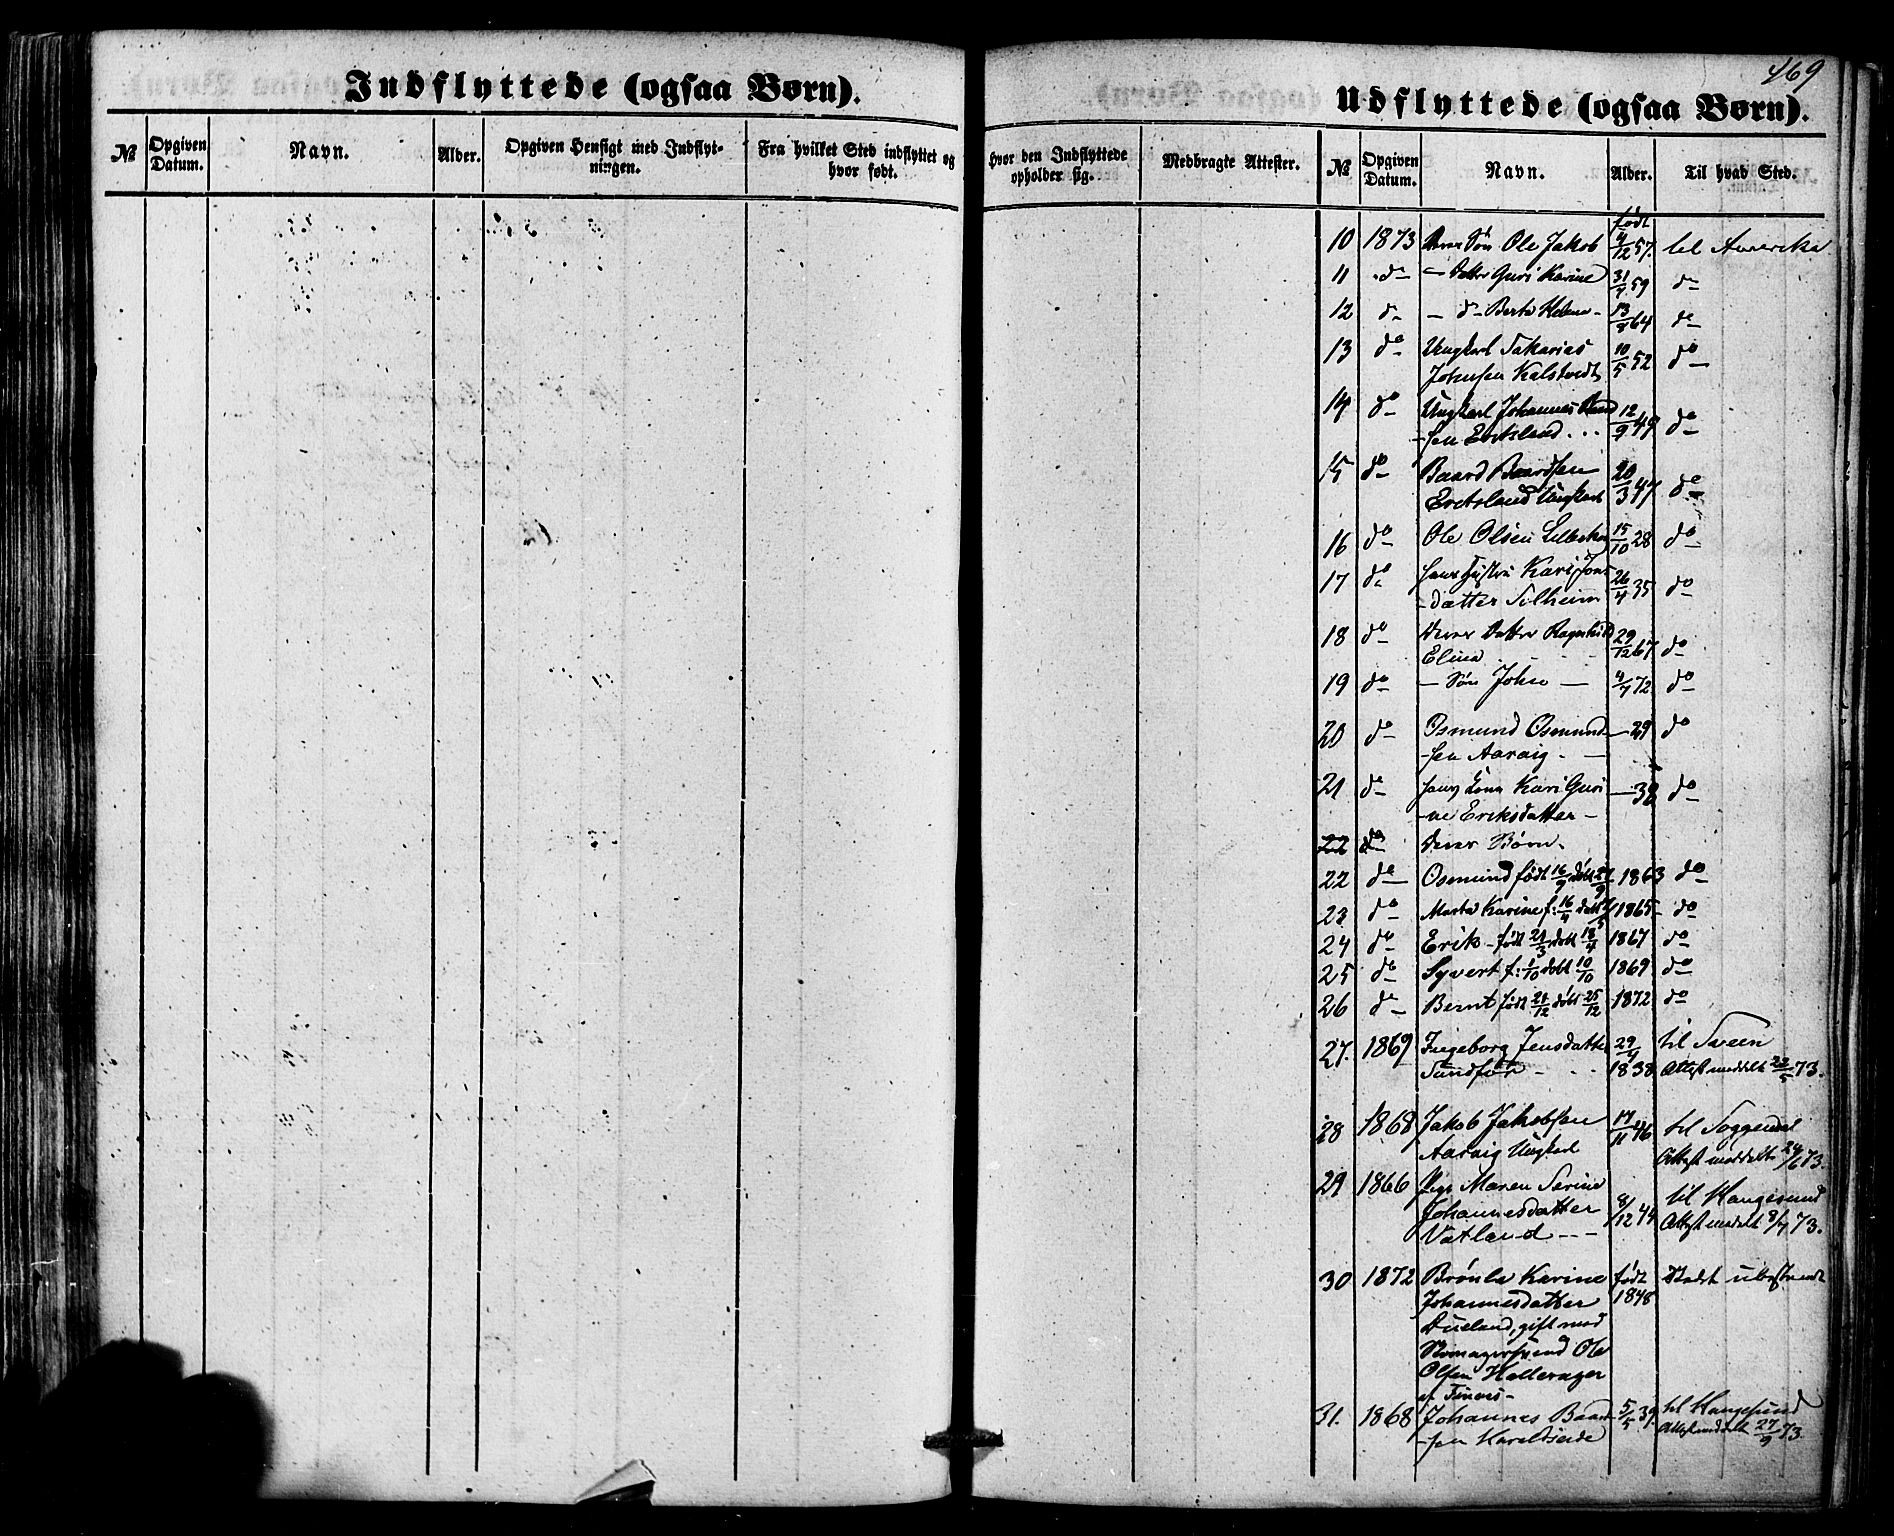 469
Indflyttede (ogsaa Børn).
Udflyttede (ogsaa Børn).
№ Opgiven Datum. Navn. Alder. Opgiven Hensigt med Indflytningen. Fra hvilket Sted indflyttet og hvor født.
Hvor den Indflyttede opholder sig. Medbragte Attester. № Opgiven Datum. Navn. Alder. Til hvad Sted.
født
10 1873 Deres Søn Ole Jakob 4/12 57. til Amerika
11 do — Datter Guri Karine 31/7 59 do
12 do — do Berta Helene 13/8 64 do
13 do Ungkarl Sakarias 10/5 52 do
Johnsen Kalstvedt
14 do Ungkarl Johannes 12/9 49 do
sen Eritsland
15 do Baard Baardsen 20/3 47 do
Eritsland Ungkarl
16 do Ole Olsen 15/10 28 do
17 do hans Hustru Kari Jons 26/4 35 do
datter Solheim
18 do Deres Datter Ragnhild 29/12 67 do
Elina
19 do — Søn John — 4/7 72 do
20 do Osmund Osmund — 29 do
sen Aarvig
21 do hans Kone Kari Guri — 38 do
ne Eriksdatter
22 do Deres Børn.
22 do Osmund født 16/9 døbt 27/9 1863 do
23 do Marta Karine f: 16/4 døbt 1865 do
24 do Erik født 21/3 døbt 18/4 1867 do
25 do Syvert f: 1/10 døbt 10/10 1869 do
26 do Bernt født 21/12 døbt 25/12 1872 do
27. 1869 Ingeborg Jensdatter 29/4 til Sveen
Sundfør 1838 Attest meddelt 22/5 73.
28 1868 Jakob Jakobsen 17/11 46 til Soggendal
Aarvig Ungkarl Attest meddelt 24/6 73.
29 1866 Pige Maren Serine 8/12 44 til Haugesund
Johannesdatter Attest meddelt 8/7 73.
Vatland
30 1872 Brønla Karine født Stedet ubestemt
Johannesdatter 1848
Dueland, gift med
Skomagersvend Ole
Olsen Hallerager
af Finaas
31. 1868 Johannes Baard 5/5 39. til Haugesund
sen Haraldseide Attest meddelt 27/9 73.